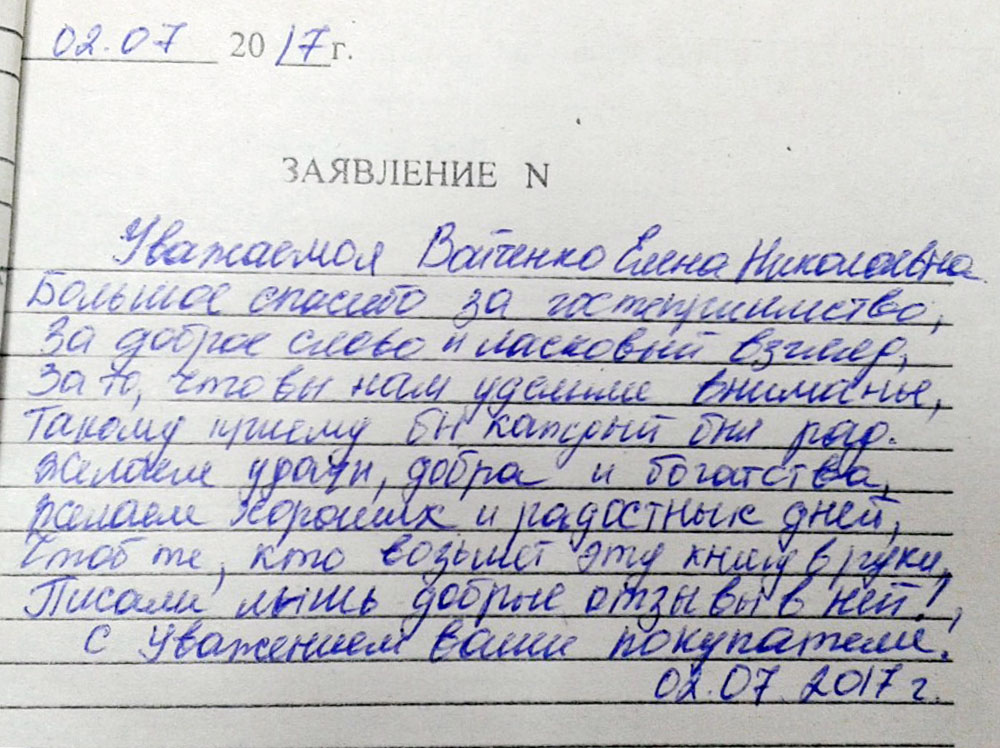 02.07 2017 г.
ЗАЯВЛЕНИЕ N
Уважаемая Вайченко Елена Николаевна
Большое спасибо за гостеприимство,
За доброе слово и ласковый взгляд,
За то, что вы нам уделили вниманье,
Такому приему бы каждый был рад.
Желаем удачи, добра и богатства,
желаем хороших и радостных дней,
Чтоб те, кто возьмет эту книгу в руки,
Писали лышь добрые отзывы в ней!,
С Уважением ваши покупатели.
02.07.2017 г.